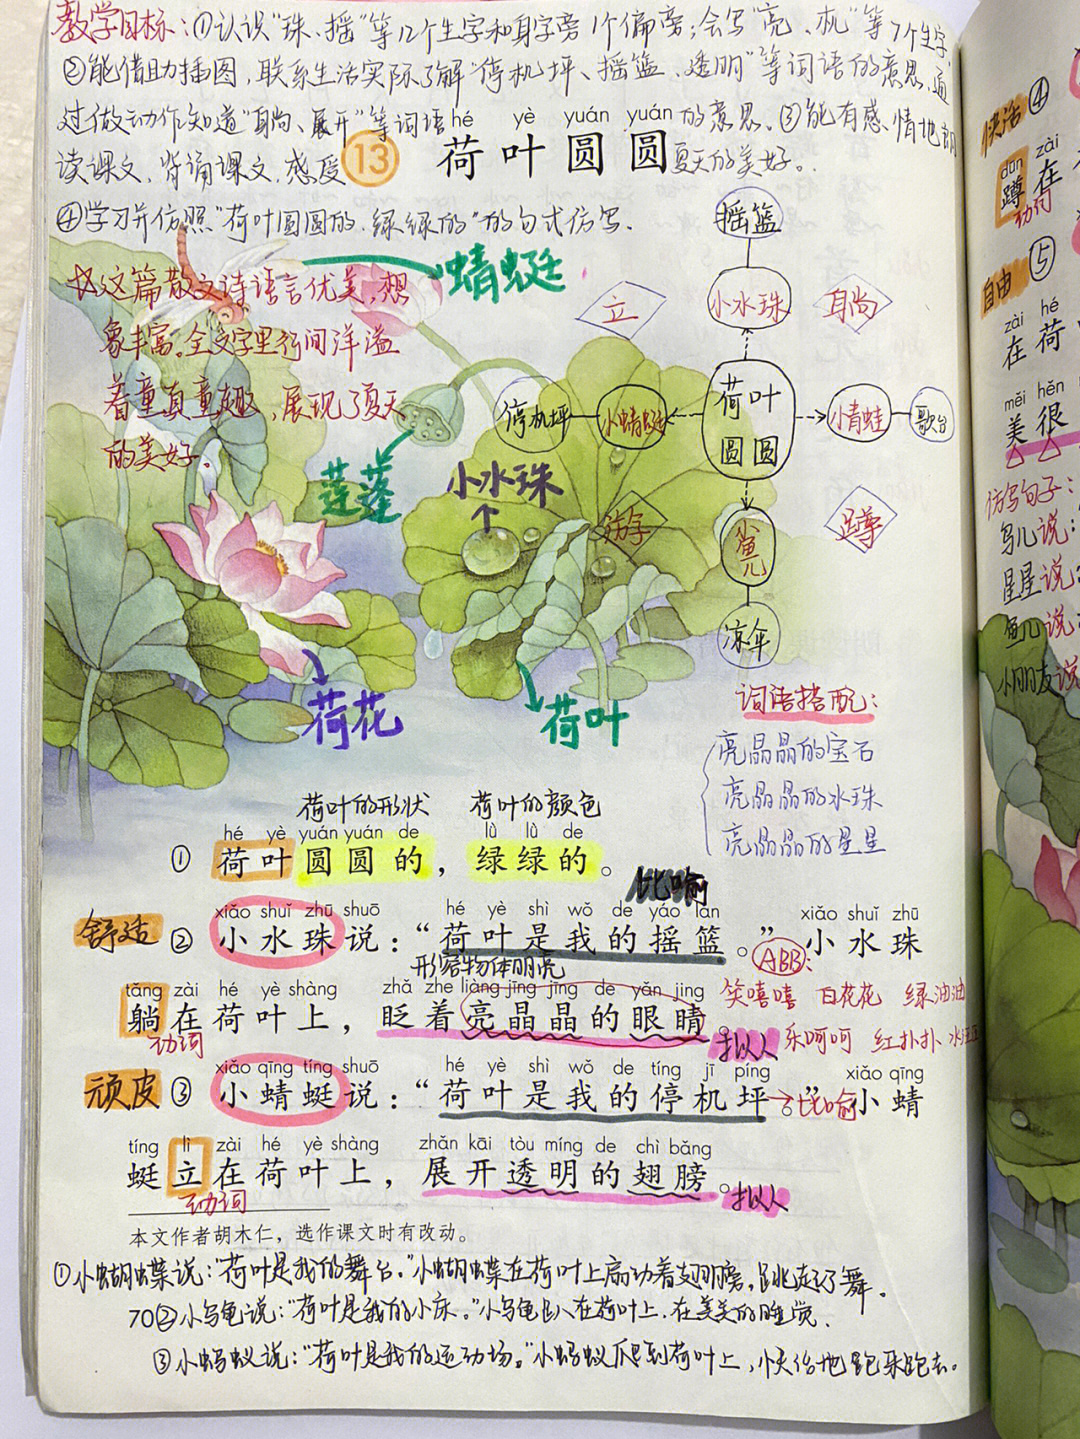 教学目标：①认识"珠、摇"等12个生字和身字旁1个偏旁；会写"亮、机"等7个生字。
②能借助插图，联系生活实际了解"停机坪、摇篮、透明"等词语的意思，通
过做动作知道"躺、展开"等词语的意思。③能有感情地朗
读课文，背诵课文，感受夏天的美好。
hé yè yuán yuán
13 荷叶圆圆
④学习并仿照"荷叶圆圆的，绿绿的"的句式仿写。
☆这篇散文诗语言优美，想
象丰富。全文字里行间洋溢
着童真童趣，展现了夏天
的美好。
蜻蜓
莲蓬
小水珠
荷花
荷叶
摇篮
小水珠
立
躺
荷叶
圆圆
停机坪
小蜻蜓
小青蛙
歌台
游
蹲
小鱼儿
凉伞
词语搭配：
亮晶晶的宝石
亮晶晶的水珠
亮晶晶的星星
荷叶的形状 荷叶的颜色
hé yè yuán yuán de lǜ lǜ de
① 荷叶圆圆的，绿绿的。
比喻
xiǎo shuǐ zhū shuō hé yè shì wǒ de yáo lán xiǎo shuǐ zhū
舒适 ② 小水珠说："荷叶是我的摇篮。"小水珠
形容物体明亮
ABB：
笑嘻嘻 百花花 绿油油
乐呵呵 红扑扑
tǎng zài hé yè shàng zhǎ zhe liàng jīng jīng de yǎn jing
躺在荷叶上，眨着亮晶晶的眼睛。
动词
拟人
xiǎo qīng tíng shuō hé yè shì wǒ de tíng jī píng xiǎo qīng
顽皮 ③ 小蜻蜓说："荷叶是我的停机坪。"小蜻
比喻
tíng lì zài hé yè shàng zhǎn kāi tòu míng de chì bǎng
蜓立在荷叶上，展开透明的翅膀。
动词
拟人
本文作者胡木仁，选作课文时有改动。
①小蝴蝶说："荷叶是我的舞台。"小蝴蝶在荷叶上扇动着翅膀，跳起了舞。
70
②小乌龟说："荷叶是我的小床。"小乌龟趴在荷叶上，在美美的睡觉。
③小蚂蚁说："荷叶是我的运动场。"小蚂蚁爬到荷叶上，快活地跑来跑去。
快活 ④
dūn zài
蹲在
动词
自由 ⑤
zài hé
在荷
měi hěn
美很
仿写句子：
鸟儿说：
星星说：
鱼儿说：
小朋友说